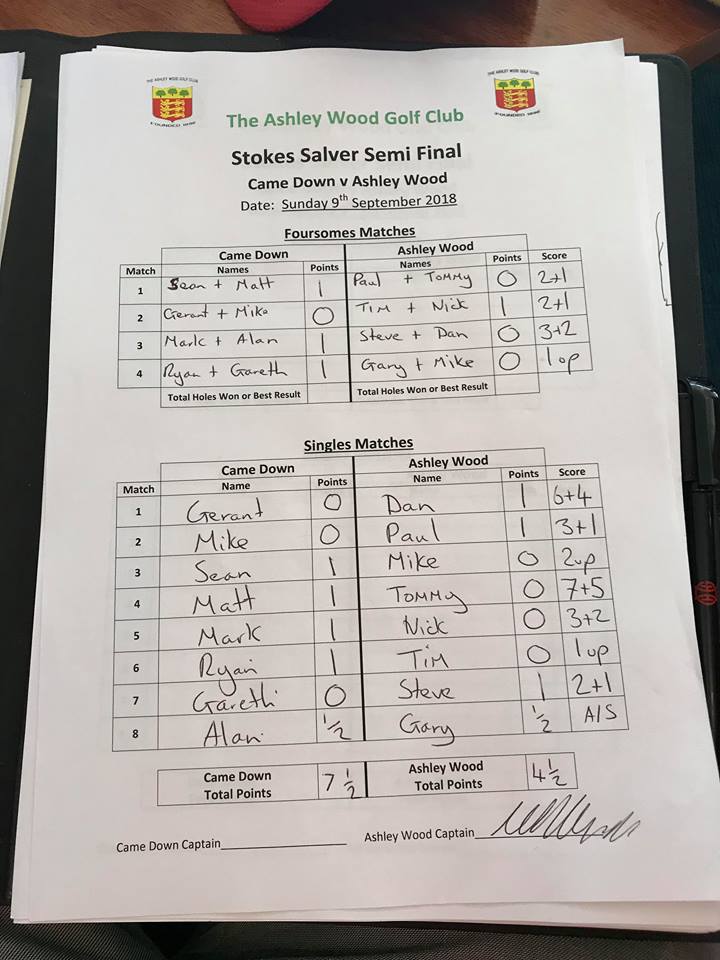 THE ASHLEY WOOD GOLF CLUB
FOUNDED 1896
THE ASHLEY WOOD GOLF CLUB
FOUNDED 1896
The Ashley Wood Golf Club
Stokes Salver Semi Final
Came Down v Ashley Wood
Date: Sunday 9th September 2018
Foursomes Matches
Came Down Ashley Wood
Match Names Points Names Points Score
1 Sean + Matt 1 Paul + Tommy 0 2+1
2 Gerant + Mike 0 Tim + Nick 1 2+1
3 Mark + Alan 1 Steve + Dan 0 3+2
4 Ryan + Gareth 1 Gary + Mike 0 1 up
Total Holes Won or Best Result Total Holes Won or Best Result
Singles Matches
Came Down Ashley Wood
Match Name Points Name Points Score
1 Gerant 0 Dan 1 6+4
2 Mike 0 Paul 1 3+1
3 Sean 1 Mike 0 2up
4 Matt 1 Tommy 0 7+5
5 Mark 1 Nick 0 3+2
6 Ryan 1 Tim 0 1 up
7 Gareth 0 Steve 1 2+1
8 Alan ½ Gary ½ A/S
Came Down Total Points 7 ½ Ashley Wood Total Points 4 ½
Came Down Captain Ashley Wood Captain